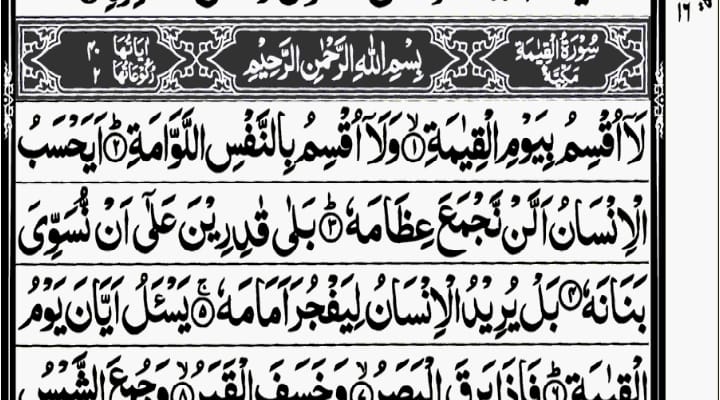 سُوْرَةُ الْقِيٰمَةِ مَكِّيَّةٌ بِسْمِ اللّٰهِ الرَّحْمٰنِ الرَّحِيْمِ اٰيَاتُهَا ۴۰ رُكُوْعَاتُهَا ۲
لَاۤ اُقْسِمُ بِيَوْمِ الْقِيٰمَةِ ۙ﴿۱﴾ وَلَاۤ اُقْسِمُ بِالنَّفْسِ اللَّوَّامَةِ ؕ﴿۲﴾ اَيَحْسَبُ
الْاِنْسَانُ اَلَّنْ نَّجْمَعَ عِظَامَهٗ ؕ﴿۳﴾ بَلٰى قٰدِرِيْنَ عَلٰۤى اَنْ نُّسَوِّىَ
بَنَانَهٗ ﴿۴﴾ بَلْ يُرِيْدُ الْاِنْسَانُ لِيَفْجُرَ اَمَامَهٗ ۚ﴿۵﴾ يَسْـَٔلُ اَيَّانَ يَوْمُ
الْقِيٰمَةِ ؕ﴿۶﴾ فَاِذَا بَرِقَ الْبَصَرُ ۙ﴿۷﴾ وَخَسَفَ الْقَمَرُ ۙ﴿۸﴾ وَجُمِعَ الشَّمْسُ
۱۶